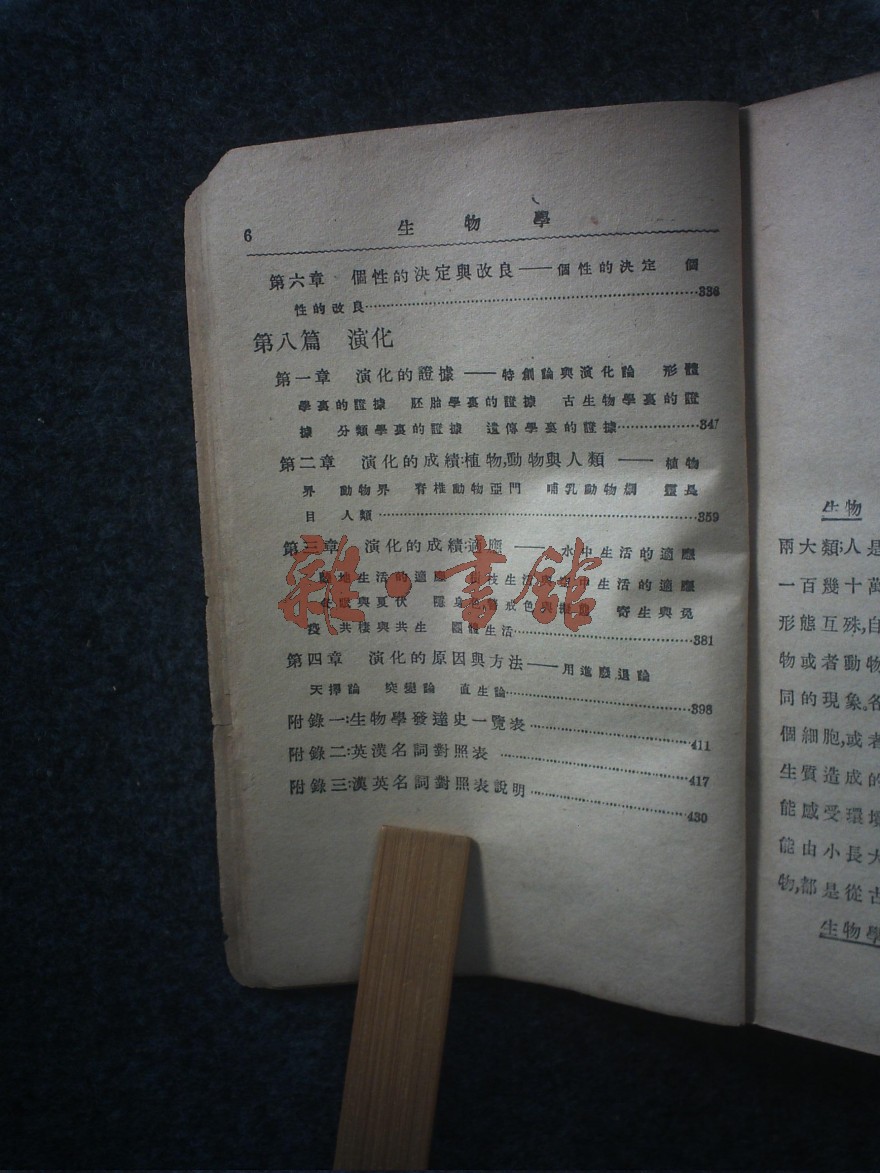 6 生物學
第六章 個性的決定與改良——個性的決定 個
性的改良……336
第八篇 演化
第一章 演化的證據——特創論與演化論 形體
學裏的證據 胚胎學裏的證據 古生物學裏的證
據 分類學裏的證據 遺傳學裏的證據……347
第二章 演化的成績:植物,動物與人類——植物
界 動物界 脊椎動物亞門 哺乳動物綱 靈長
目 人類……359
第三章 演化的成績:適應——水中生活的適應
陸地生活的適應 樹枝生活與空中生活的適應
與夏伏 隱身色,警戒色與 寄生與免
疫 共棲與共生 團體生活……381
第四章 演化的原因與方法——用進廢退論
天擇論 突變論 直生論……398
附錄一:生物學發達史一覽表……411
附錄二:英漢名詞對照表……417
附錄三:漢英名詞對照表說明……430
雜·書館
生物
兩大類;人是
一百幾十萬
形態互殊,自
物或者動物
同的現象。各
個細胞,或者
生質造成的
能感受環境
能由小長大
物,都是從古
生物學